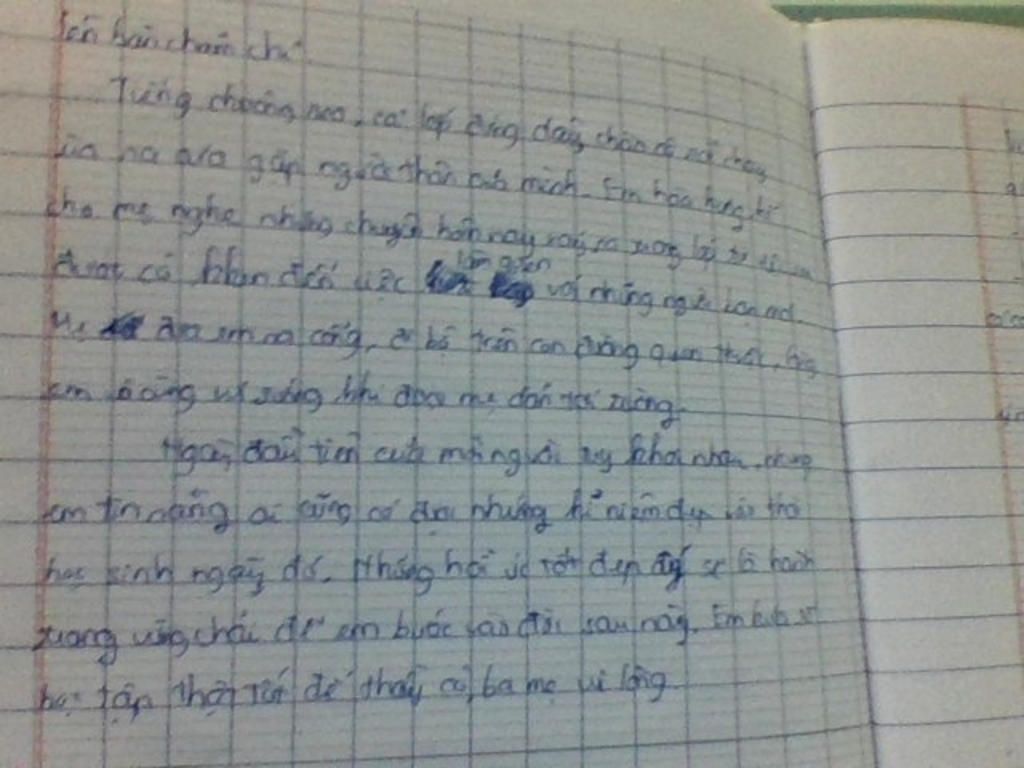 bài chăm chỉ.
Tiếng chuông reo, cả lớp đứng dậy chào cô rồi chạy
ùa ra gặp người thân của mình. Em hào hứng kể
cho mẹ nghe những chuyện hôm nay xảy ra trong lớp từ
cho đến việc làm quen với những người bạn mới.
Mẹ đưa em ra cổng, đi bộ trên con đường quen thuộc, lòng
em vô cùng vui sướng khi được mẹ đón tới trường.
Ngày đầu tiên của mỗi người tuy khác nhau, nhưng
em tin rằng ai cũng có được những kỉ niệm đẹp vào thời
học sinh ngày đó. Những hồi ức tốt đẹp ấy sẽ là hành
trang vững chãi để em bước vào đời sau này. Em hứa sẽ
học tập thật tốt để thầy cô, ba mẹ vui lòng